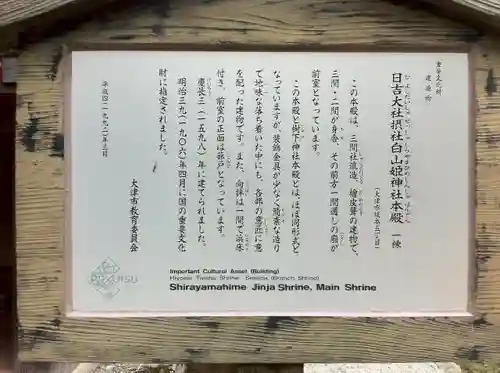 重要文化財
建造物
日吉大社摂社白山姫神社本殿 一棟
この本殿は、三間社流造、檜皮葺の建物で、
三間・二間が身舎、その前方一間通しの廂が
前室となっています。
この本殿と樹下神社本殿とは、ほぼ同形式と
なっていますが、装飾金具が少なく簡素な造り
で地味な落ち着いた中にも、各部の意匠に意
を配った建物です。また、向拝は一間で浜床
付き、前室の正面は蔀戸となっています。
慶長三(一五九八)年に建てられました。
明治三九(一九〇六)年四月に国の重要文化
財に指定されました。
大津市教育委員会
平成四(一九九二)年三月
Important Cultural Asset (Building)
Hiyoshi Taisha Shrine, Sessha (Branch Shrine)
Shirayamahime Jinja Shrine, Main Shrine